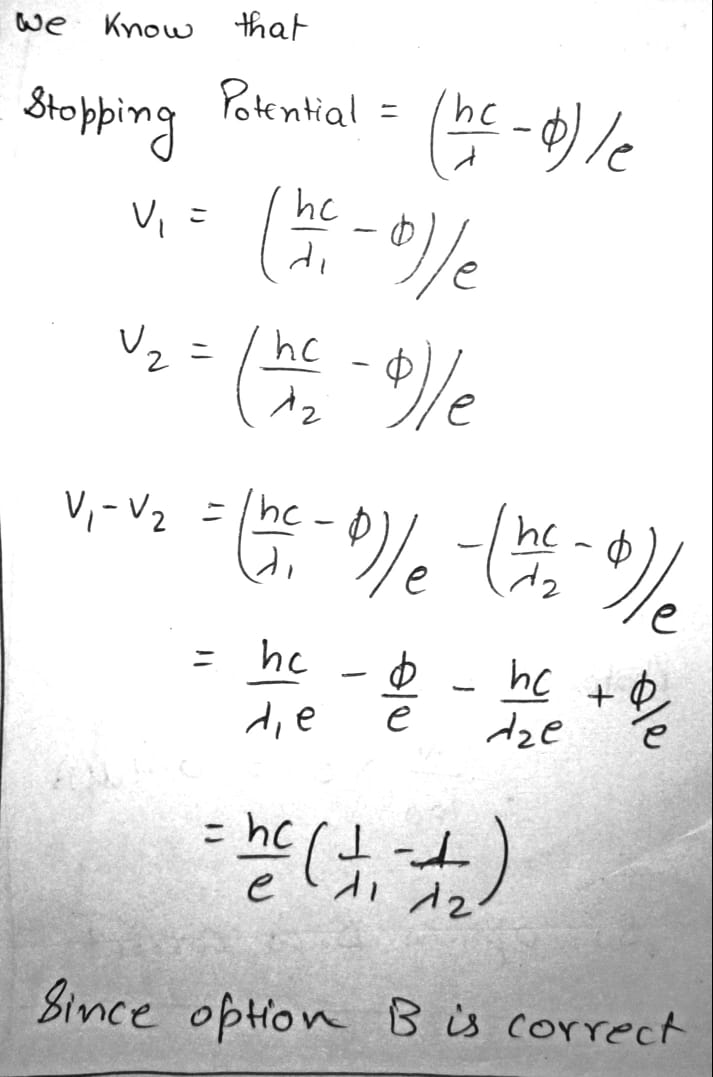 We Know that
Stopping Potential = (hc/λ - φ)/e
V₁ = (hc/λ₁ - φ)/e
V₂ = (hc/λ₂ - φ)/e
V₁-V₂ = (hc/λ₁ - φ)/e - (hc/λ₂ - φ)/e
= hc/λ₁e - φ/e - hc/λ₂e + φ/e
= hc/e (1/λ₁ - 1/λ₂)
Since option B is correct